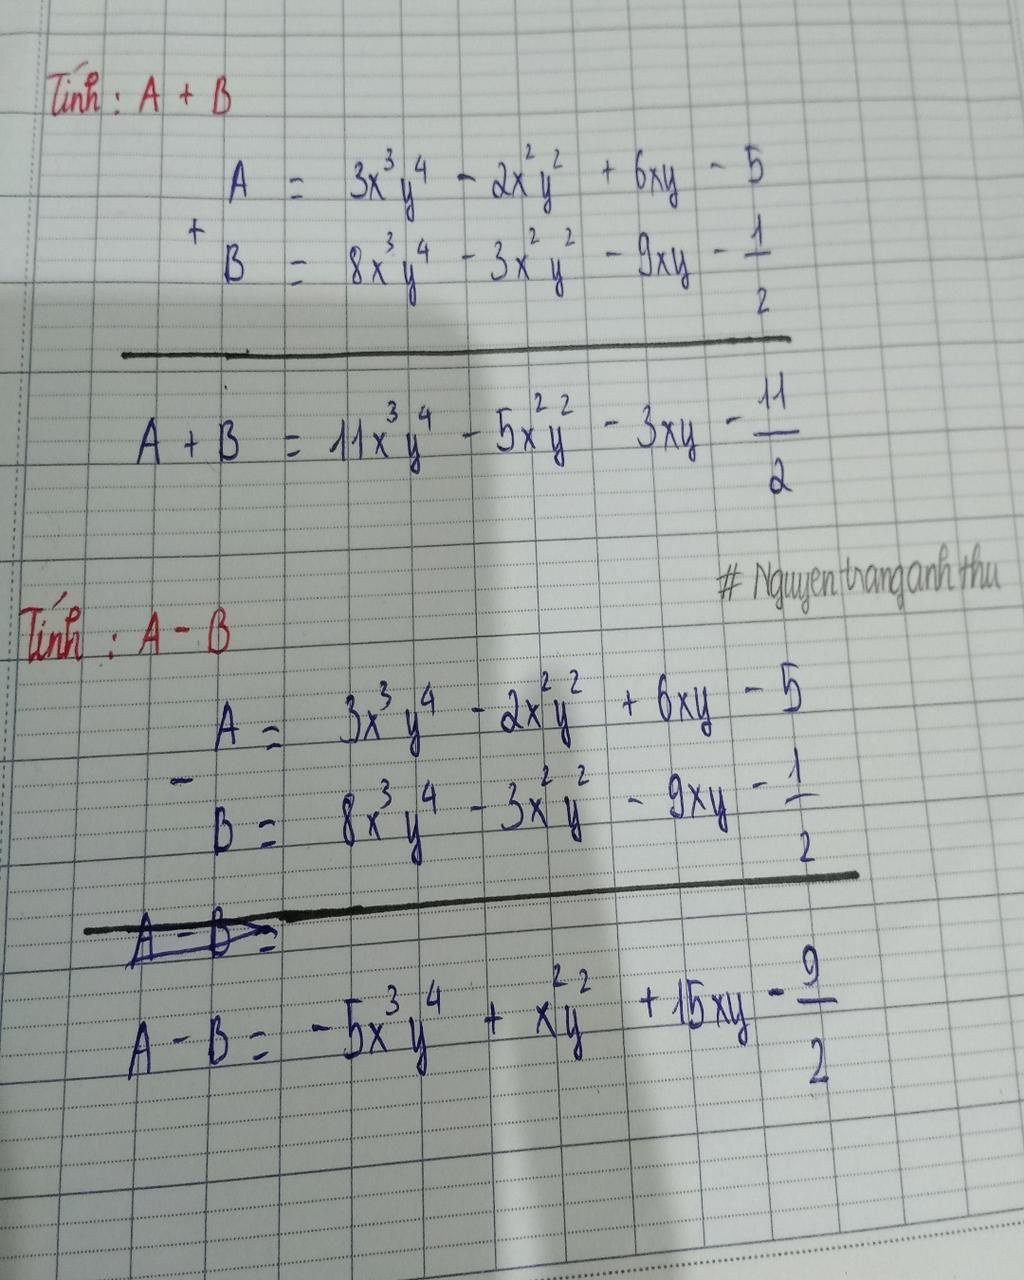 Tính : A + B
A = 3x³y⁴ - 2x²y² + 6xy - 5
+
B = 8x³y⁴ - 3x²y² - 9xy - 1/2
A + B = 11x³y⁴ - 5x²y² - 3xy - 11/2
# Nguyentranganhthu
Tính : A - B
A = 3x³y⁴ - 2x²y² + 6xy - 5
-
B = 8x³y⁴ - 3x²y² - 9xy - 1/2
A - B =
A - B = - 5x³y⁴ + x²y² + 15xy - 9/2